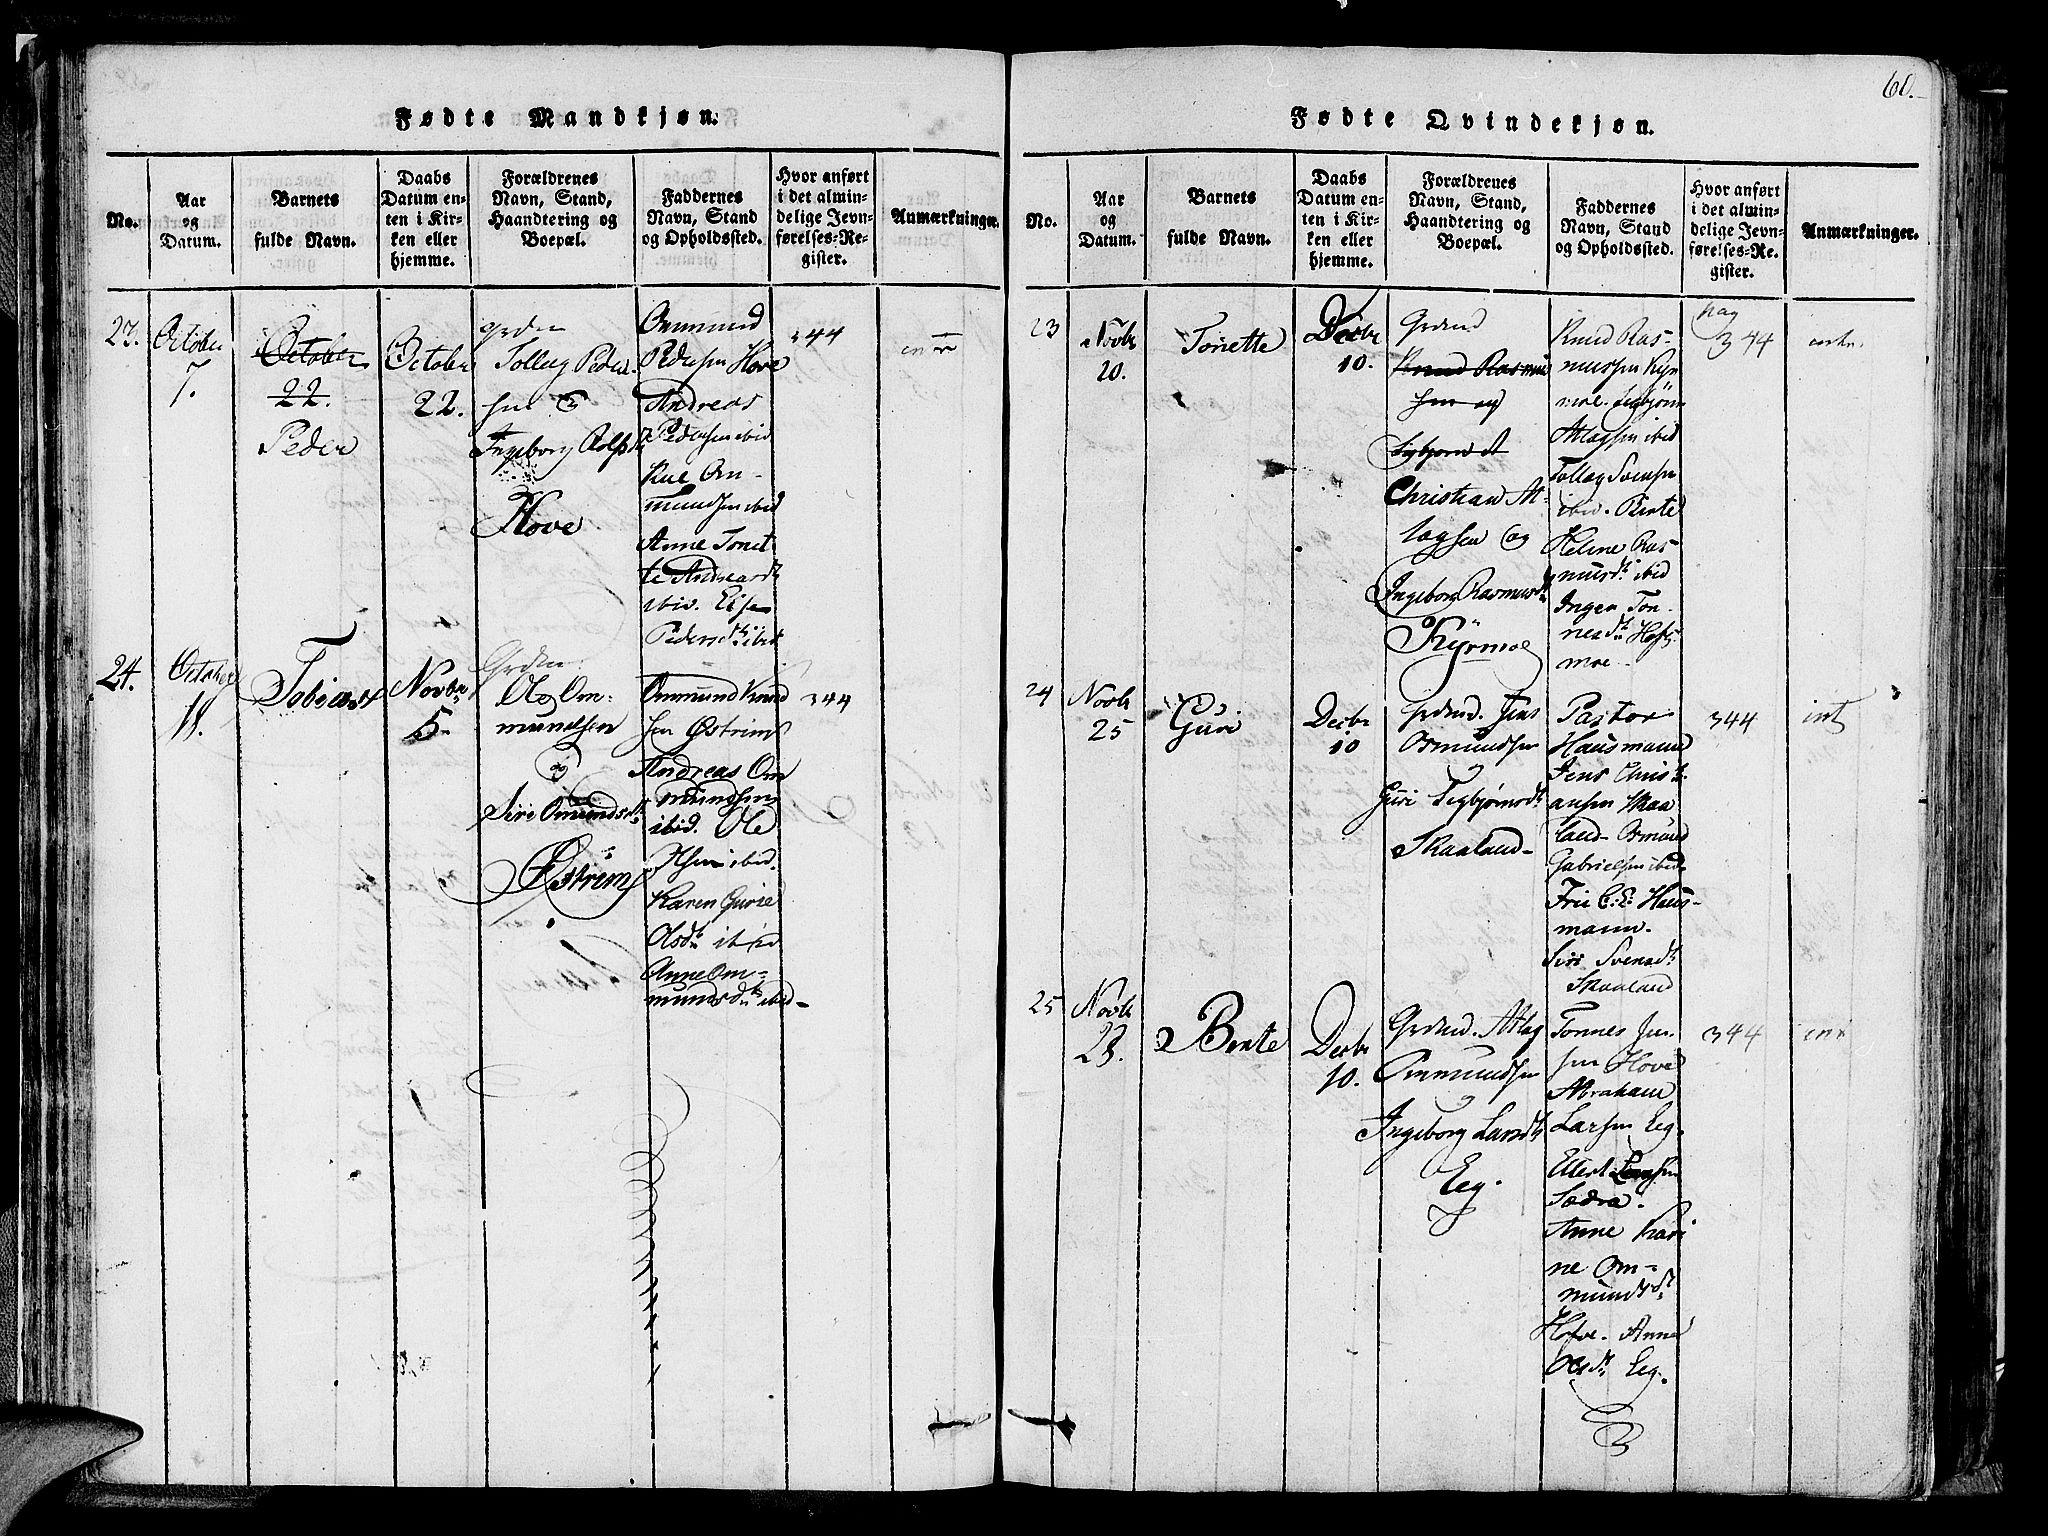 60.
Fødte Mandkjøn.
No.
Aar
og
Datum.
Barnets
fulde Navn.
Daabs
Datum en-
ten i Kir-
ken eller
hjemme.
Forældrenes
Navn, Stand,
Haandtering og
Boepæl.
Faddernes
Navn, Stand
og Opholdssted.
Hvor anført
i det almin-
delige Jevn-
førelses-Re-
gister.
Anmærkninger.
23.
October
7.
October
22.
Peder
October
22.
Tolleg Peder
sen &
Ingeborg Rolfsd
Hove
Ommund
Pedersen Hove
Andreas
Pedersen ibid
Om-
mundsen ibid
Anne Tonet
te Andreasd
ibid. Else
Pedersdt ibid
344
24.
October
18.
Tobias
Novbr
5.
Ole Om-
mundsen
og
Siri Omundsdt
Østrim
Ommund Knud
sen Østrim
Andreas Om
mundsen
ibid. Ole
Olsen ibid.
Karen Gurie
Olsdt ibid
Anne Om-
mundsdt ibid-
344
Fødte Qvindekjøn.
No.
Aar
og
Datum.
Barnets
fulde Navn.
Daabs
Datum en-
ten i Kir-
ken eller
hjemme.
Forældrenes
Navn, Stand,
Haandtering og
Boepæl.
Faddernes
Navn, Stand
og Opholdssted.
Hvor anført
i det almin-
delige Jevn-
førelses-Re-
gister.
Anmærkninger.
23
Novbr
20.
Tonette
Decbr
10.
Knud Rasmu
sen og
Christian At-
lagsen og
Ingeborg Rasmusdt
Kyrmoe
Knud Ras-
mussen Kyr
moe. Sigbjørn
Atlagsen ibid
Tollag Svensen
ibid. Bente
Heline Ras-
musdt ibid
Inger Ton-
nesdt
moe
pag
344
24
Novbr
25
Guri
Decbr
10
Jens
Osmundsen
Guri Sigbjørnsdt
Skaaland-
Pastor
Hausmann
Jens Christ
ansen Skaa
land- Osmund
Gabrielsen ibid.
Frue C. E. Haus-
mann.
Siri Svensdt
Skaaland
344
int
25
Novbr
23.
Bente
Decbr
10.
Atlag
Ommundsen
Ingeborg Larsdt
Eeg.
Tonnes Jen-
sen Hove
Abraham
Larsen Eeg.
Ellert Larsen
Sædra.
Anne Kari
ne Om-
mundsdt
Hove. Anne
Olsdt Eeg.
344